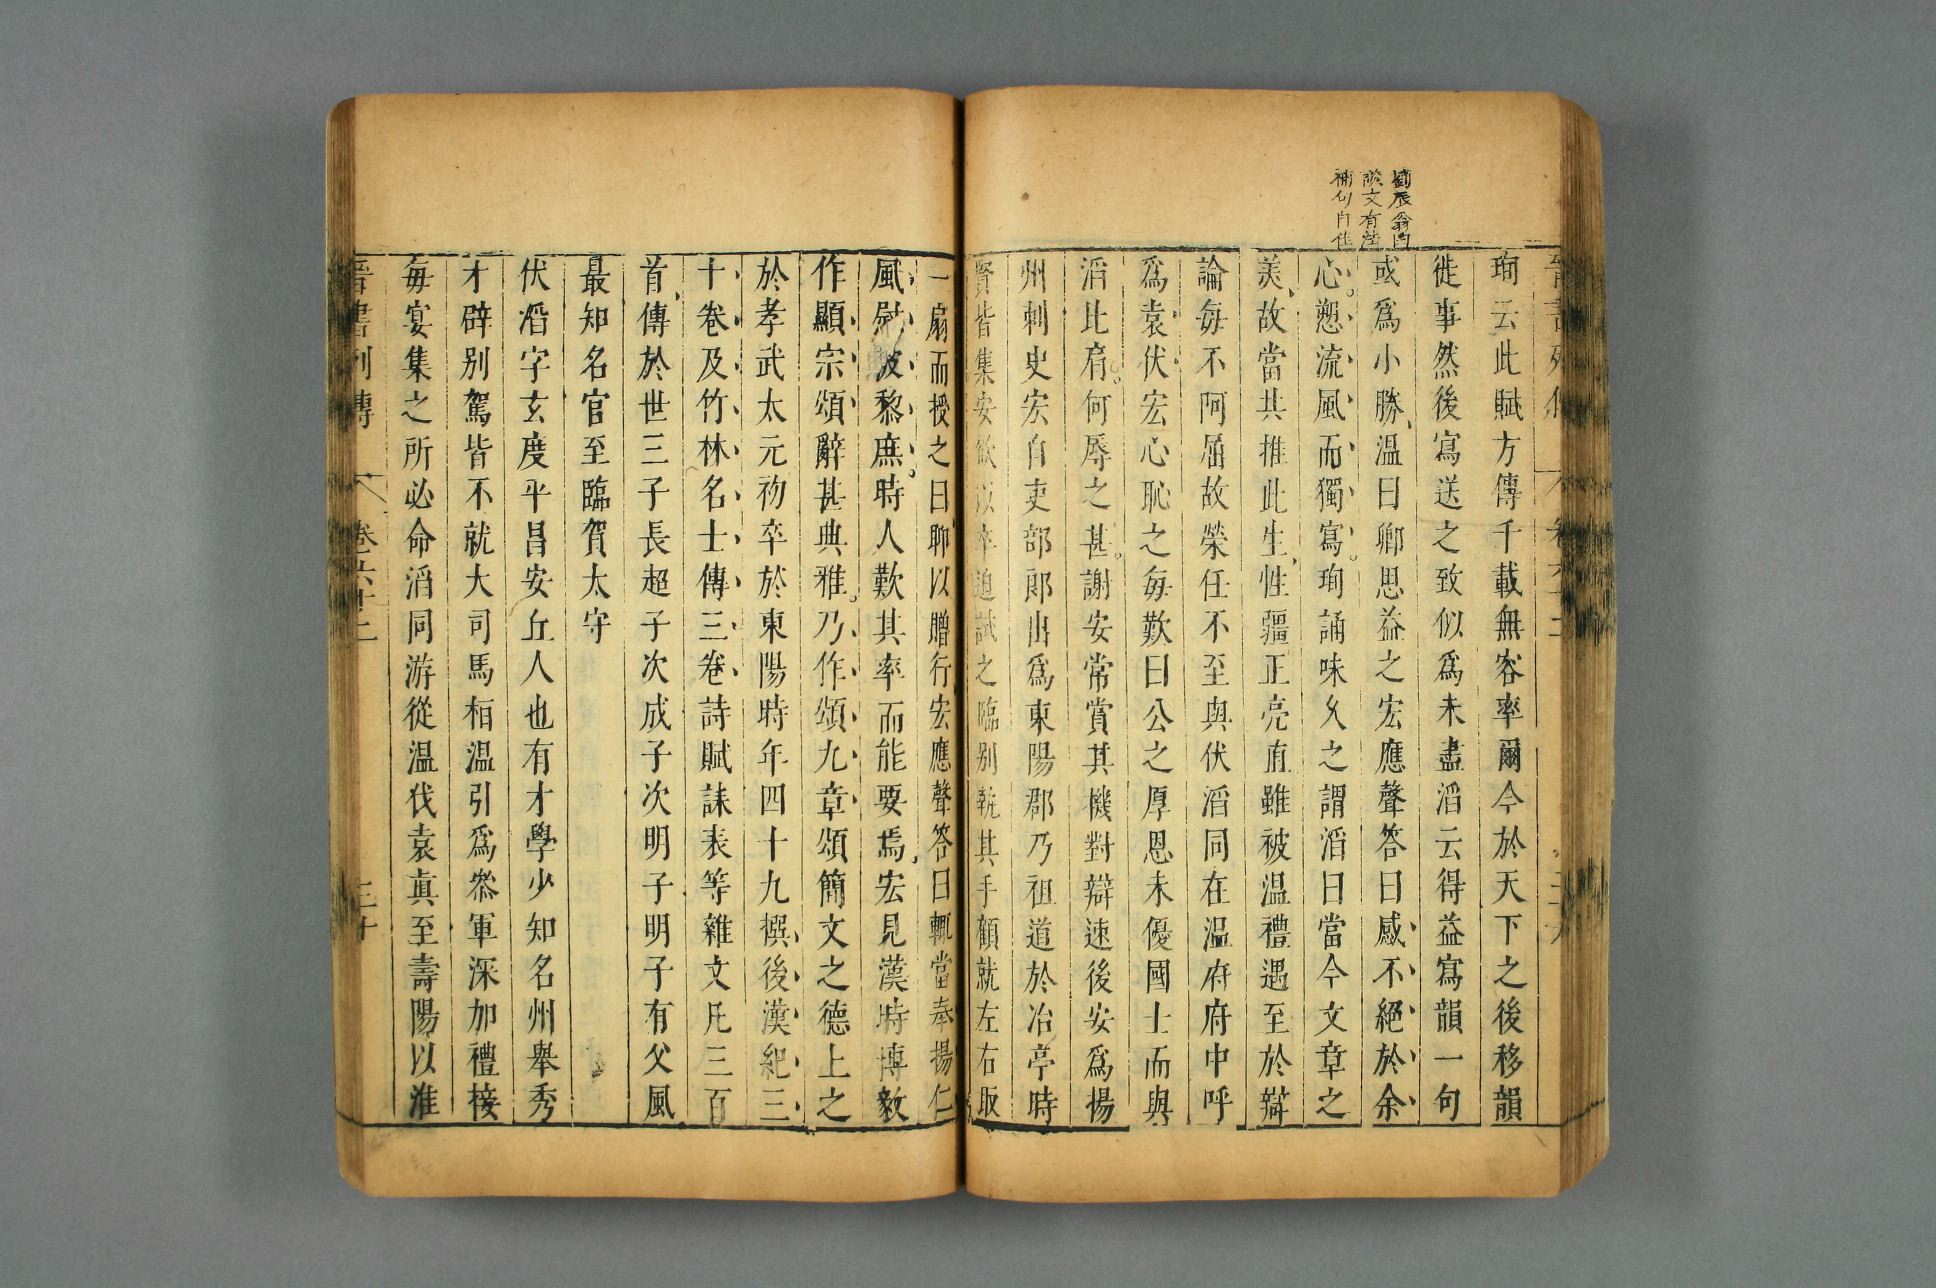 劉辰翁曰
談文有法
補句自佳
珣云此賦方傳千載無容率爾今於天下之後移韻
徙事然後寫送之致似爲未盡滔云得益寫韻一句
或爲小勝温曰卿思益之宏應聲答曰感不絕於余
心愬流風而獨寫珣誦味久之謂滔曰當今文章之
美故當共推此生性彊正亮直雖被温禮遇至於辯
論每不阿屈故榮任不至與伏滔同在温府府中呼
爲袁伏宏心恥之每歎曰公之厚恩未優國士而與
滔比肩何辱之甚謝安常賞其機對辯速後安爲揚
州刺史宏自吏部郎出爲東陽郡乃祖道於冶亭時
賢皆集安欲以卒迫試之臨别執其手顧就左右取
一扇而授之曰聊以贈行宏應聲答曰輒當奉揚仁
風慰彼黎庶時人歎其率而能要焉宏見漢時傅毅
作顯宗頌辭甚典雅乃作頌九章頌簡文之德上之
於孝武太元初卒於東陽時年四十九撰後漢紀三
十卷及竹林名士傳三卷詩賦誄表等雜文凡三百
首傳於世三子長超子次成子次明子明子有父風
最知名官至臨賀太守
伏滔字玄度平昌安丘人也有才學少知名州舉秀
才辟别駕皆不就大司馬桓温引爲參軍深加禮接
每宴集之所必命滔同游從温伐袁真至壽陽以淮
晉書列傳 卷六十二 三十